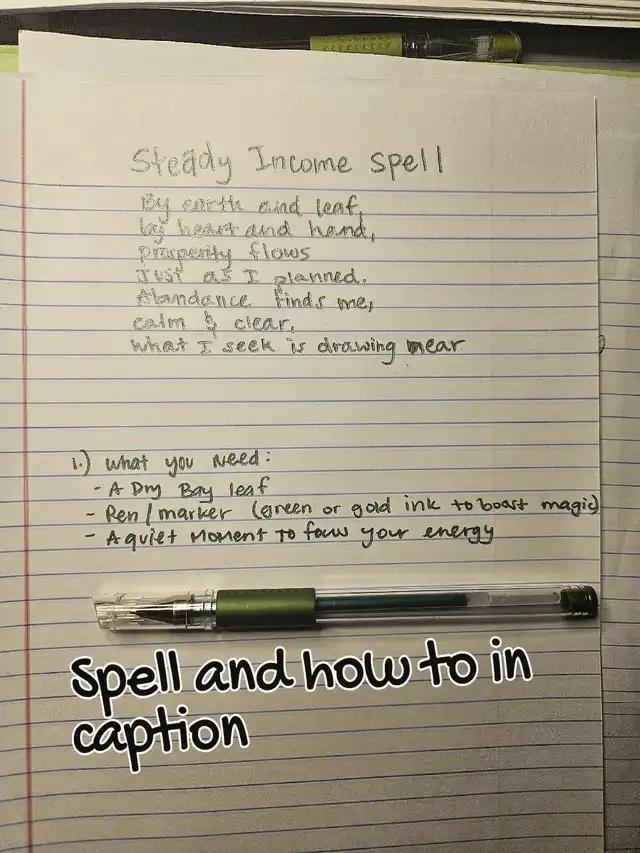 Steady Income Spell
By earth and leaf,
by heart and hand,
prosperity flows
Just as I planned.
Abandance finds me,
calm & clear,
what I seek is drawing near
1.) What you Need:
- A Dry Bay leaf
- Pen/marker (green or gold ink to boast magic)
- A quiet Moment To focus your energy
Spell and how to in
caption